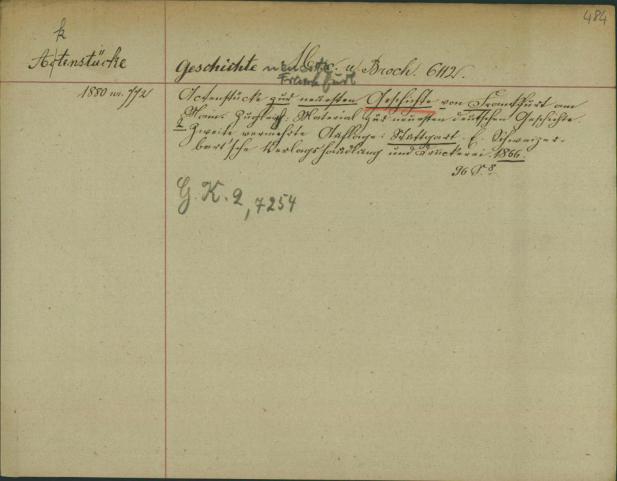 484
k
Actenstücke
Geschichte neueste Misc. u. Broch. 6112.
Frankfurt
1880 nr. 772
Actenstücke zur neuesten Geschichte von Frankfurt am
Main. Zugleich: Material zur neuesten deutschen Geschichte.
Zweite vermehrte Auflage: Stuttgart. E. Schweizer-
bart'sche Verlagshandlung und Druckerei. 1866.
96 S. 8.
G. K. 2, 7254